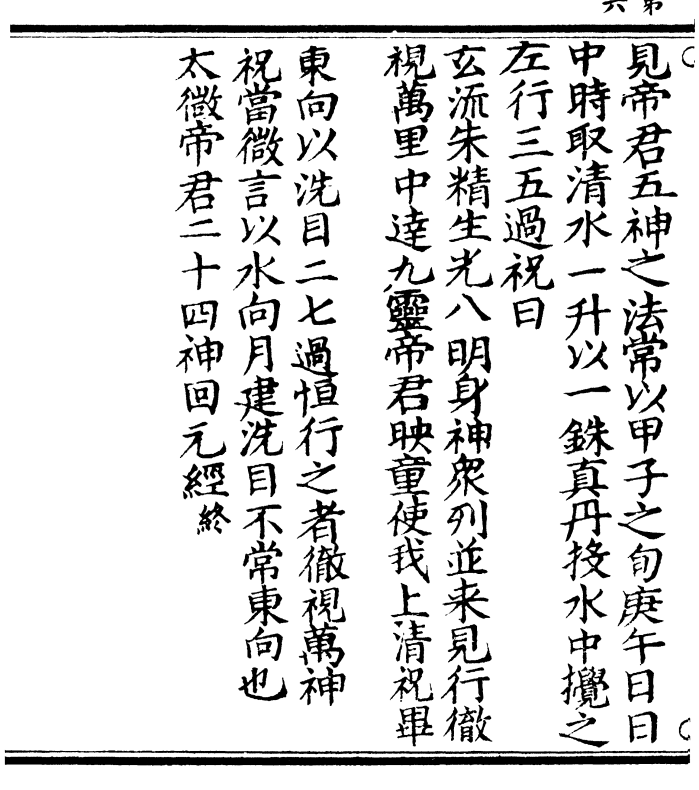 第六
見帝君五神之法常以甲子之旬庚午日日
中時取清水一升以一銖真丹投水中攪之
左行三五過祝曰
玄流朱精生光八明身神衆列並来見行徹
視萬里中達九靈帝君映童使我上清祝畢
東向以洗目二七過恒行之者徹視萬神
祝當微言以水向月建洗目不常東向也
太微帝君二十四神回元經終